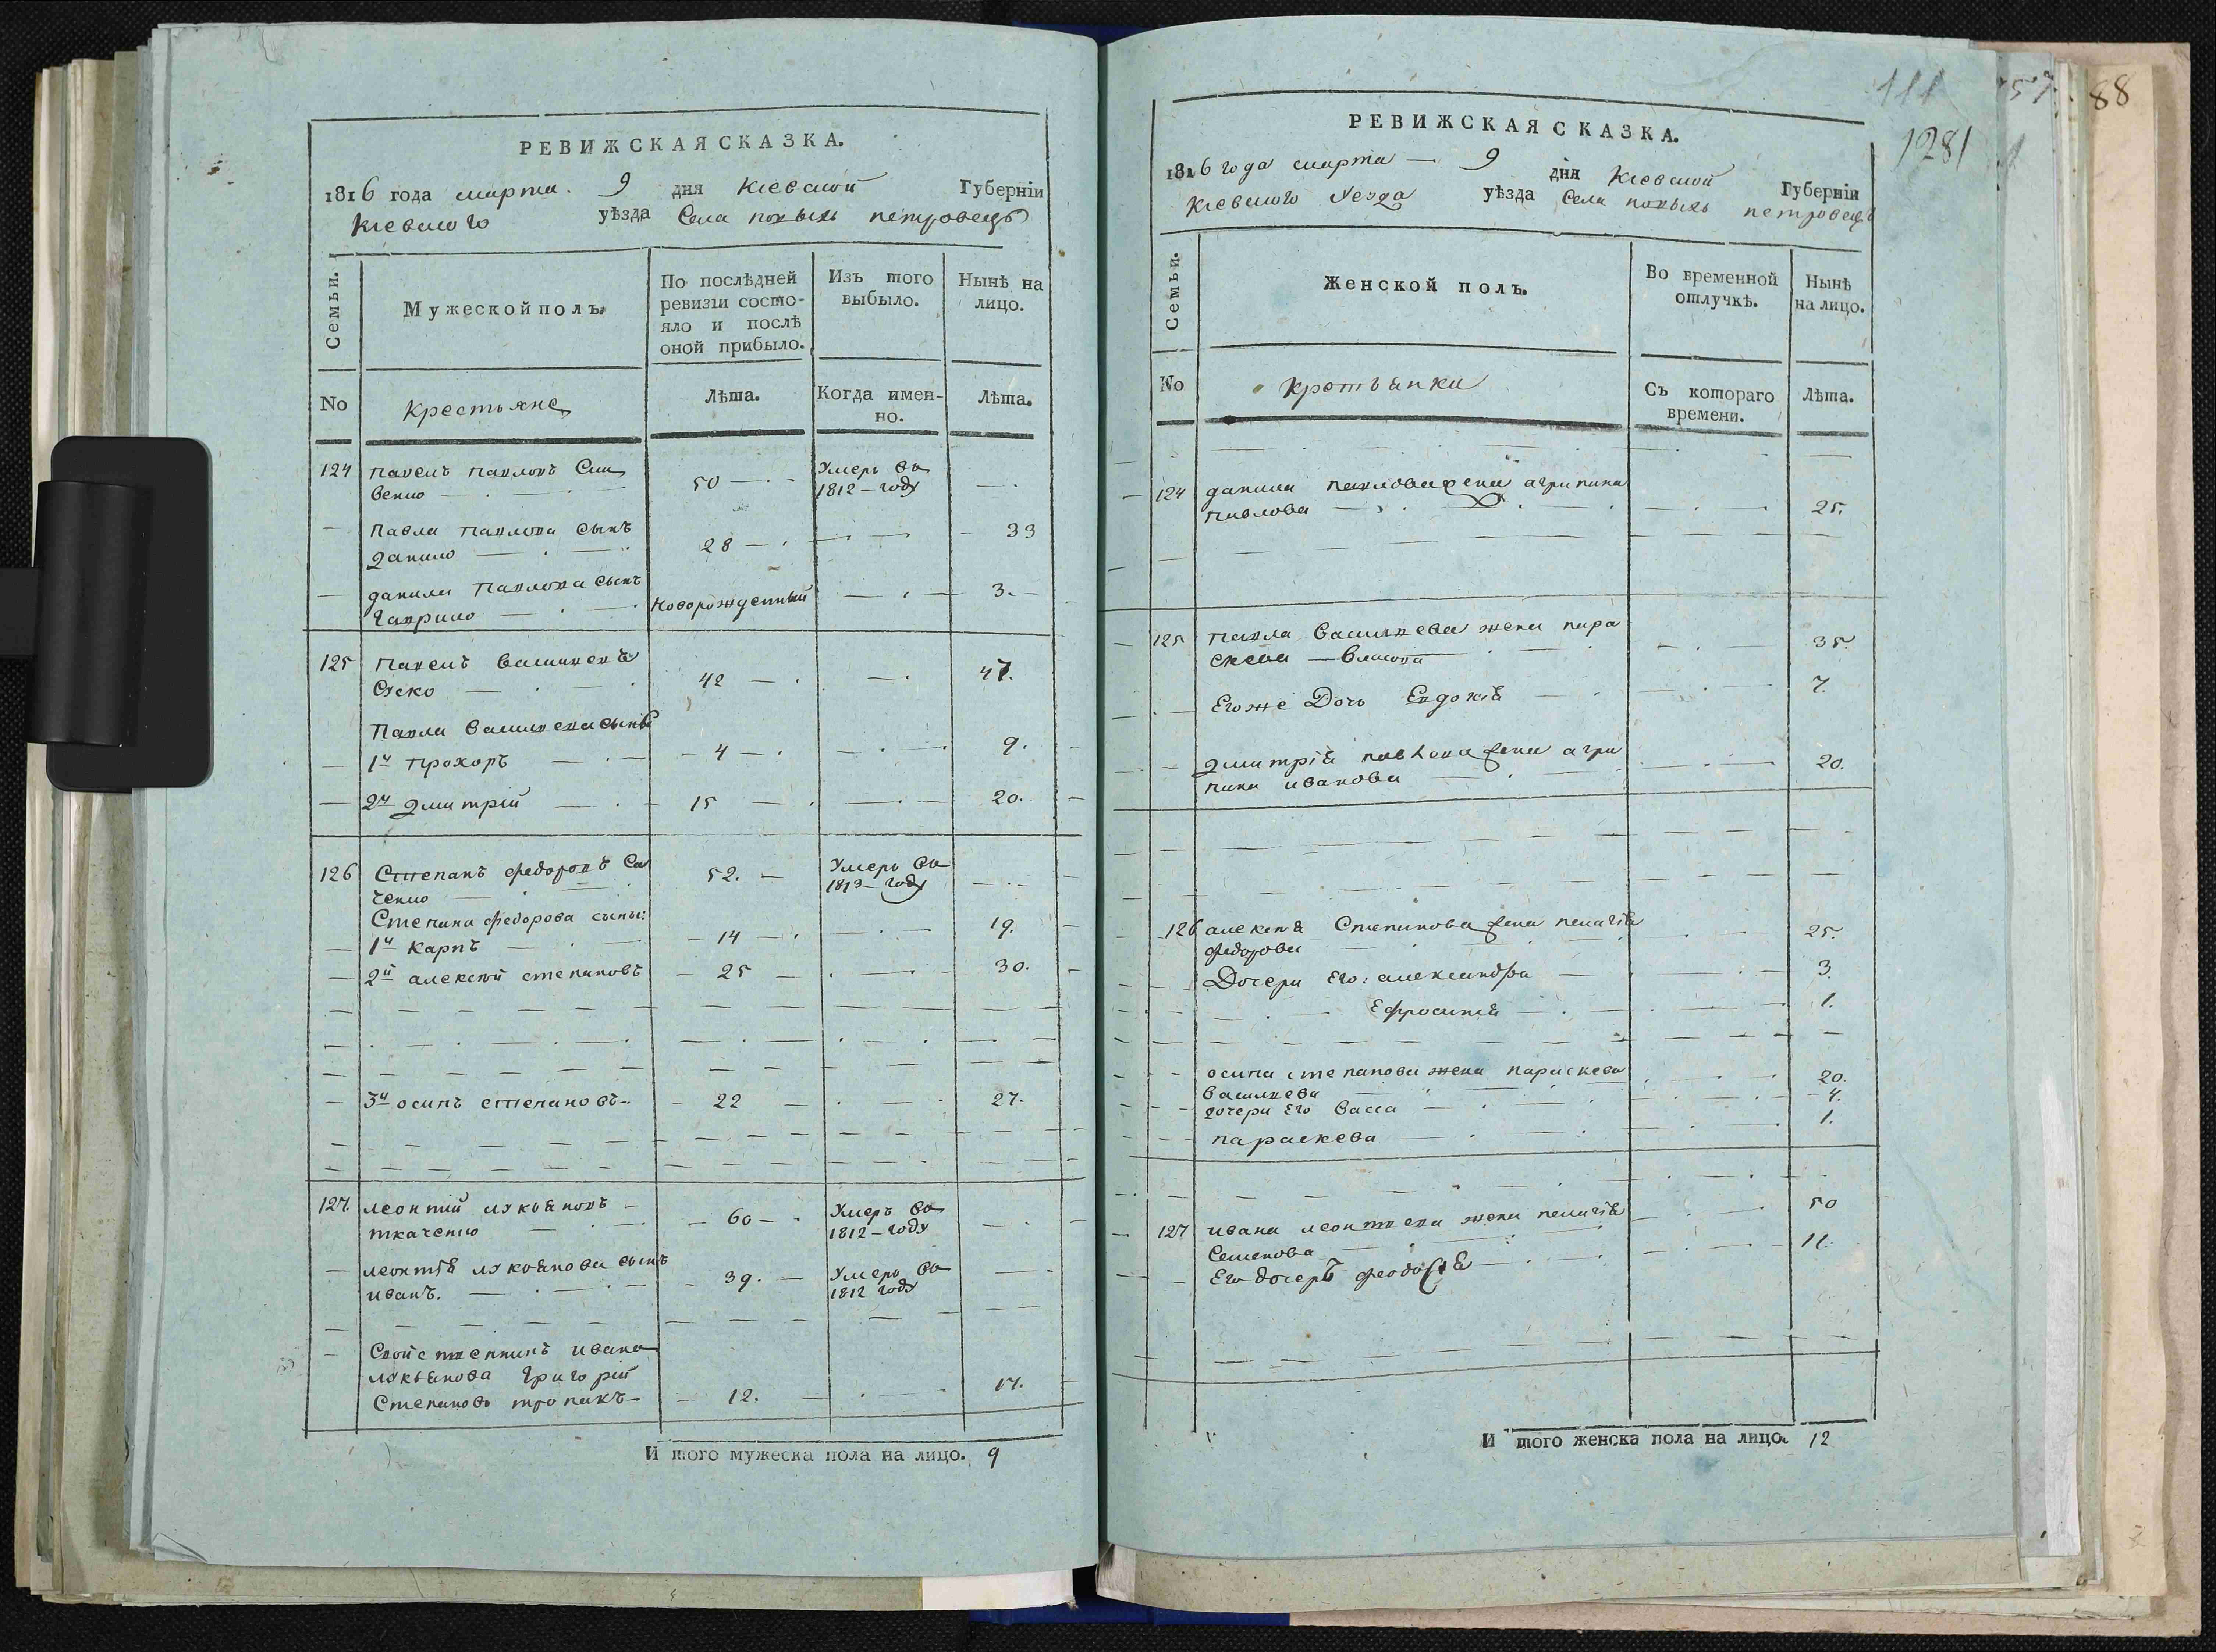 РЕВИЖСКАЯ СКАЗКА.
1816 года марта 9 дня Киевской Губерніи
Киевского уѣзда Села новыхъ петровецъ
Семьи.
Мужеской полъ.
По послѣдней
ревизіи состо-
яло и послѣ
оной прибыло.
Изъ того
выбыло.
Нынѣ на
лицо.
No
крестьяне
Лѣта.
Когда имен-
но.
Лѣта.
124 павелъ павловъ
50 Умеръ во
1812 году
Павла павлова сынъ
данило 28 33
данила павлова сынъ
гаврило Новорожденный 3.
125 павелъ василиевъ
42 47.
Павла василиева сынъ
1й прохоръ 4 9.
2й дмитрій 15 20.
126 Степанъ федоровъ Са
ченко 52. Умеръ во
1813 году
Степана федорова сыны:
1й карпъ 14 19.
2й алексѣй степановъ 25 30.
3й осипъ степановъ 22 27.
127. леонтій лукьяновъ
ткаченко 60 Умеръ во
1812 году
леонтія лукьянова сынъ
иванъ. 39. Умеръ во
1812 году
Свойственникъ ивана
лукьянова григорій
Степановъ 12. 17.
И того мужеска пола на лицо. 9
111 57. 88
1281
РЕВИЖСКАЯ СКАЗКА.
1816 года марта 9 дня Киевской Губерніи
Киевского уезда уѣзда Села новыхъ петровецъ
Семьи.
Женской полъ.
Во временной
отлучкѣ.
Нынѣ
на лицо.
No
крестьянки
Съ котораго
времени.
Лѣта.
124 данила павлова жена агрипина
павлова 25.
125 павла василиева жена пара
скева власова 35.
Его же Дочь Евдокія 7.
дмитрія павлова жена агри
пина иванова 20.
126 алексѣя Степанова жена пелагія
федорова 25.
Дочери Его: александра 3.
Ефросинія 1.
осипа степанова жена параскева
василиева 20.
дочери Его васса 4.
параскева 1.
127 ивана леонтиева жена пелагія
Семенова 50
Его дочеръ феодосія 11.
И того женска пола на лицо. 12